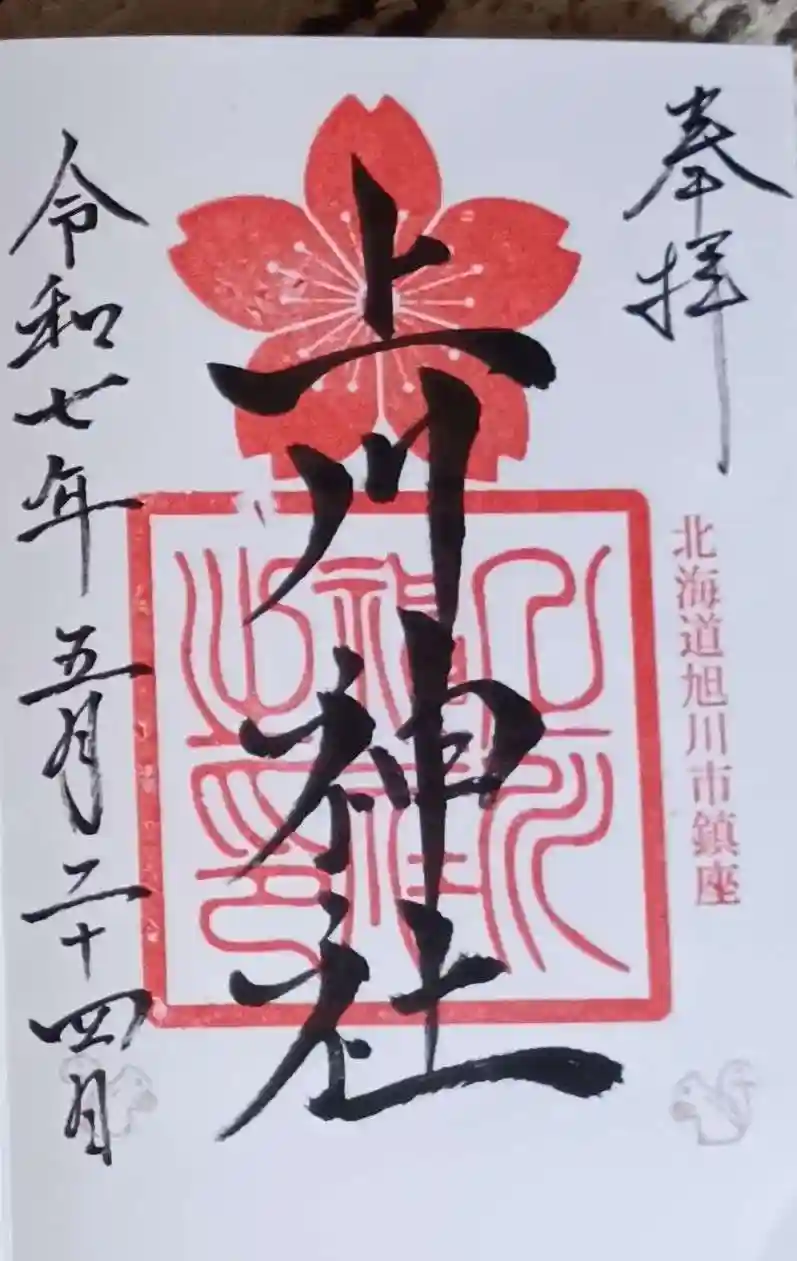 奉拝
北海道旭川市鎮座
上川神社
上川
神社
之印
令和七年五月二十四日